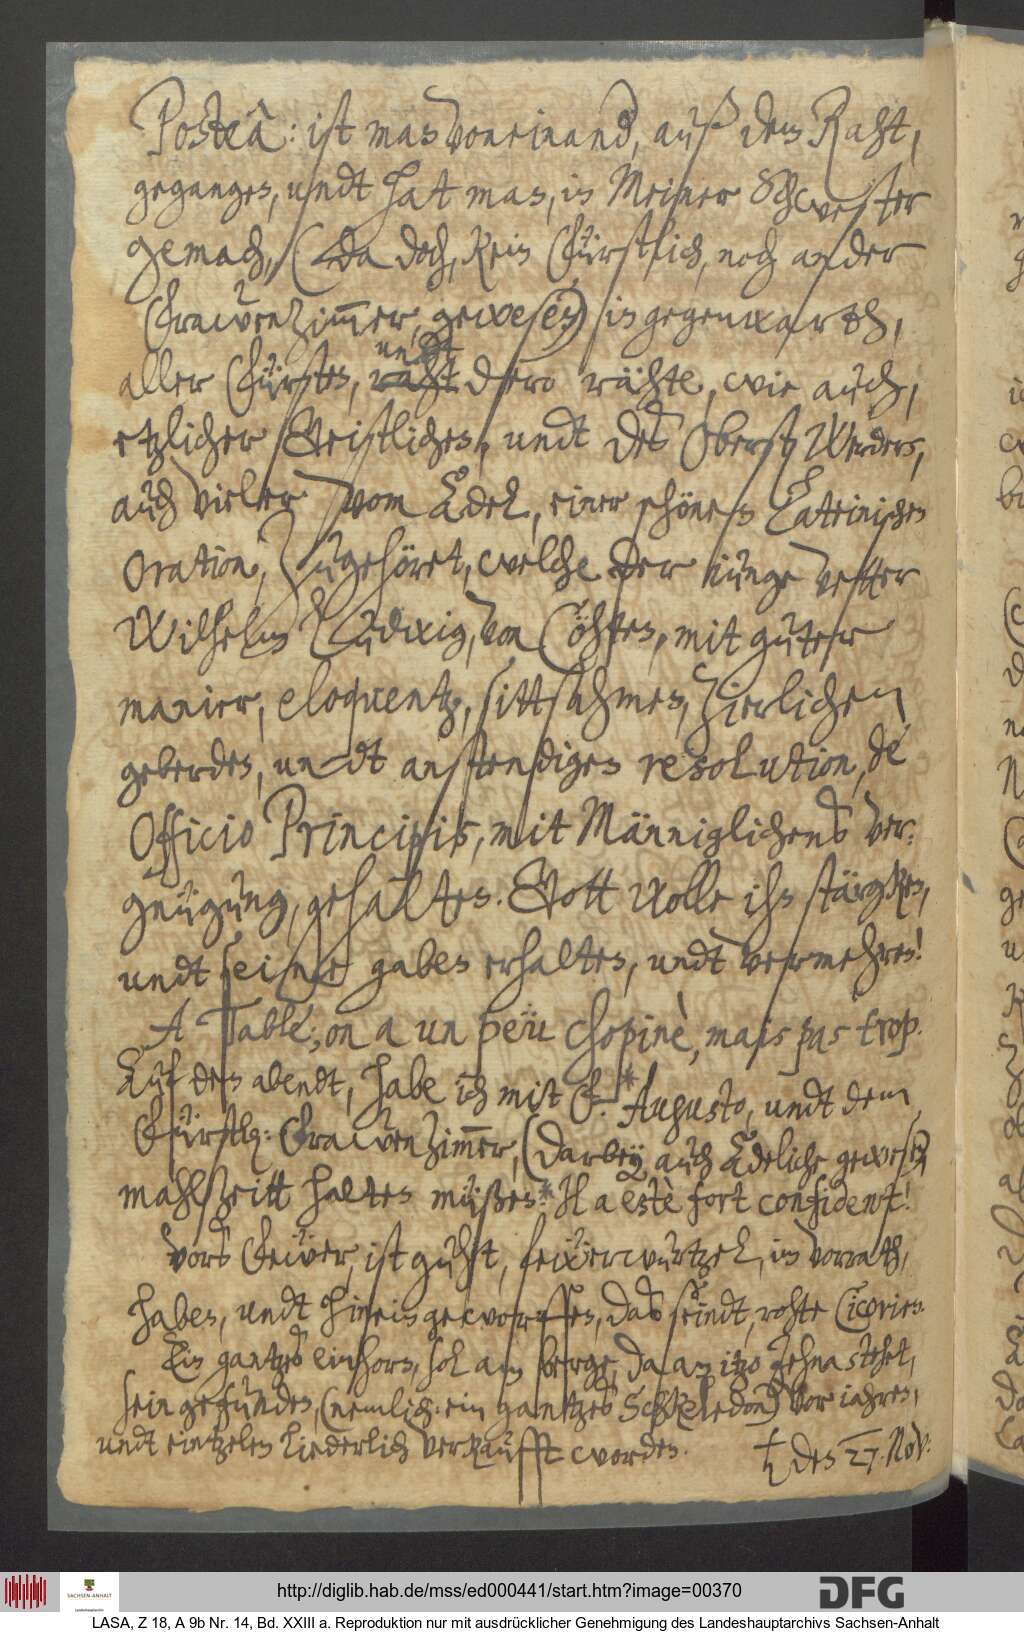 Posteâ: ist man voneinand, auß dem Raht,
gegangen, undt hat man, in Meiner Schwester
gemach, (da doch, kein Fürstlich, noch ander
Frawenzim̅er, gewesen) in gegenwarth,
aller Fürsten, undt dero rähte, wie auch,
etzlicher Geistlichen, undt des Oberst Werders,
auch vieler vom Adel, einer schönen Lateinischen
Oration, zugehöret, welche der iunge vetter
Wilhelm Ludwig, von Cöhten, mit guter
manier, eloquentz, sittsahmen, zierlichen
geberden, undt anstendigen resolution, de
Officio Principis, mit Männiglichens ver-
gnügung, gehalten. Gott wolle ihn stärcken,
undt seine gaben erhalten, undt vermehren!
A Table; on a un peü chopinè, mais pas trop.
Auf den abendt, habe ich mit F.* Augusto, undt dem
Fürstl: Frawenzim̅er, (darbey auch Adeliche gewesen)
mahlzeitt halten müßen.* Il a estè fort confident!
Vors Feẅer, ist guht, feẅerwurtzel, in vorrath,
haben, undt hineingeworffen, das seindt, rohte Cicorien.
Ein gantzes einhorn, sol am berge, da an itzo Jehna stehet,
sein gefunden, (nemlich: ein gantzes Sckeledon) vor iahren,
undt eintzelen liederlich verkaufft worden.
♄ den 27. Nov:
http://diglib.hab.de/mss/ed000441/start.htm?image=00370
SACHSEN-ANHALT
DFG
LASA, Z 18, A 9b Nr. 14, Bd. XXIII a. Reproduktion nur mit ausdrücklicher Genehmigung des Landeshauptarchivs Sachsen-Anhalt